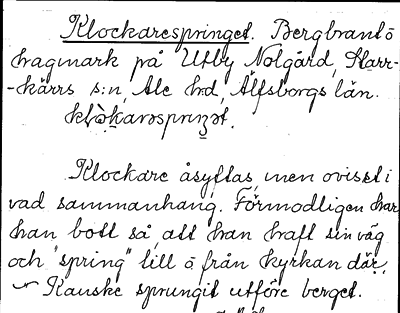 Klockarespringet. Bergbrant å
hagmark på Utby Nolgård, Starr-
-kärrs s:n, Ale hd, Älfsborgs län.

Klockare åsyftas, men ovisst i
vad sammanhang. Förmodligen har
han bott så, att han haft sin väg
och "spring" till å från kyrkan där,
Kanske sprungit utföre berget.